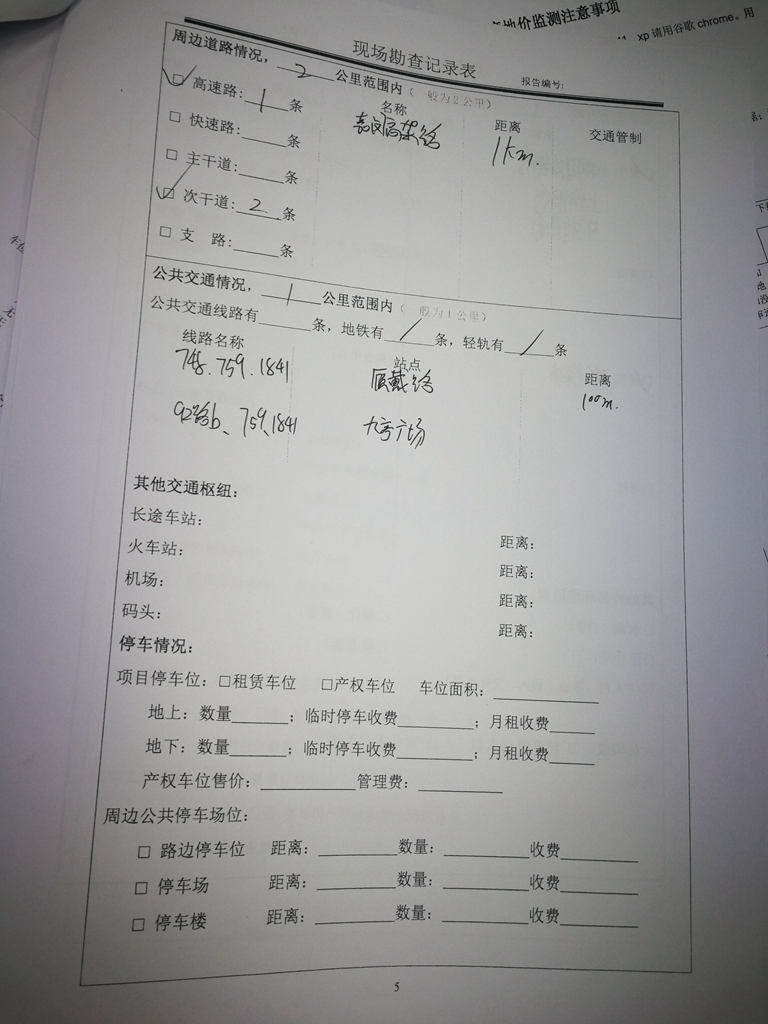 地价监测注意事项
xp 请用谷歌 chrome。用
现场勘查记录表
报告编号:
周边道路情况，2公里范围内（一般为2公里）
名称 距离 交通管制
☑ 高速路:1条 嘉闵高架路 1km.
□ 快速路:____条
□ 主干道:____条
☑ 次干道:2条
□ 支 路:____条
公共交通情况，1公里范围内（一般为1公里）
公共交通线路有____条，地铁有/条，轻轨有/条
线路名称 站点 距离
748.759.1841 顾戴路 100m.
92路b、759、1841 九亭广场
其他交通枢纽：
长途车站： 距离：
火车站： 距离：
机场： 距离：
码头： 距离：
停车情况：
项目停车位：□租赁车位 □产权车位 车位面积：____
地上：数量____；临时停车收费____；月租收费____
地下：数量____；临时停车收费____；月租收费____
产权车位售价：____管理费：____
周边公共停车场位：
□ 路边停车位 距离：____数量：____收费____
□ 停车场 距离：____数量：____收费____
□ 停车楼 距离：____数量：____收费____
5